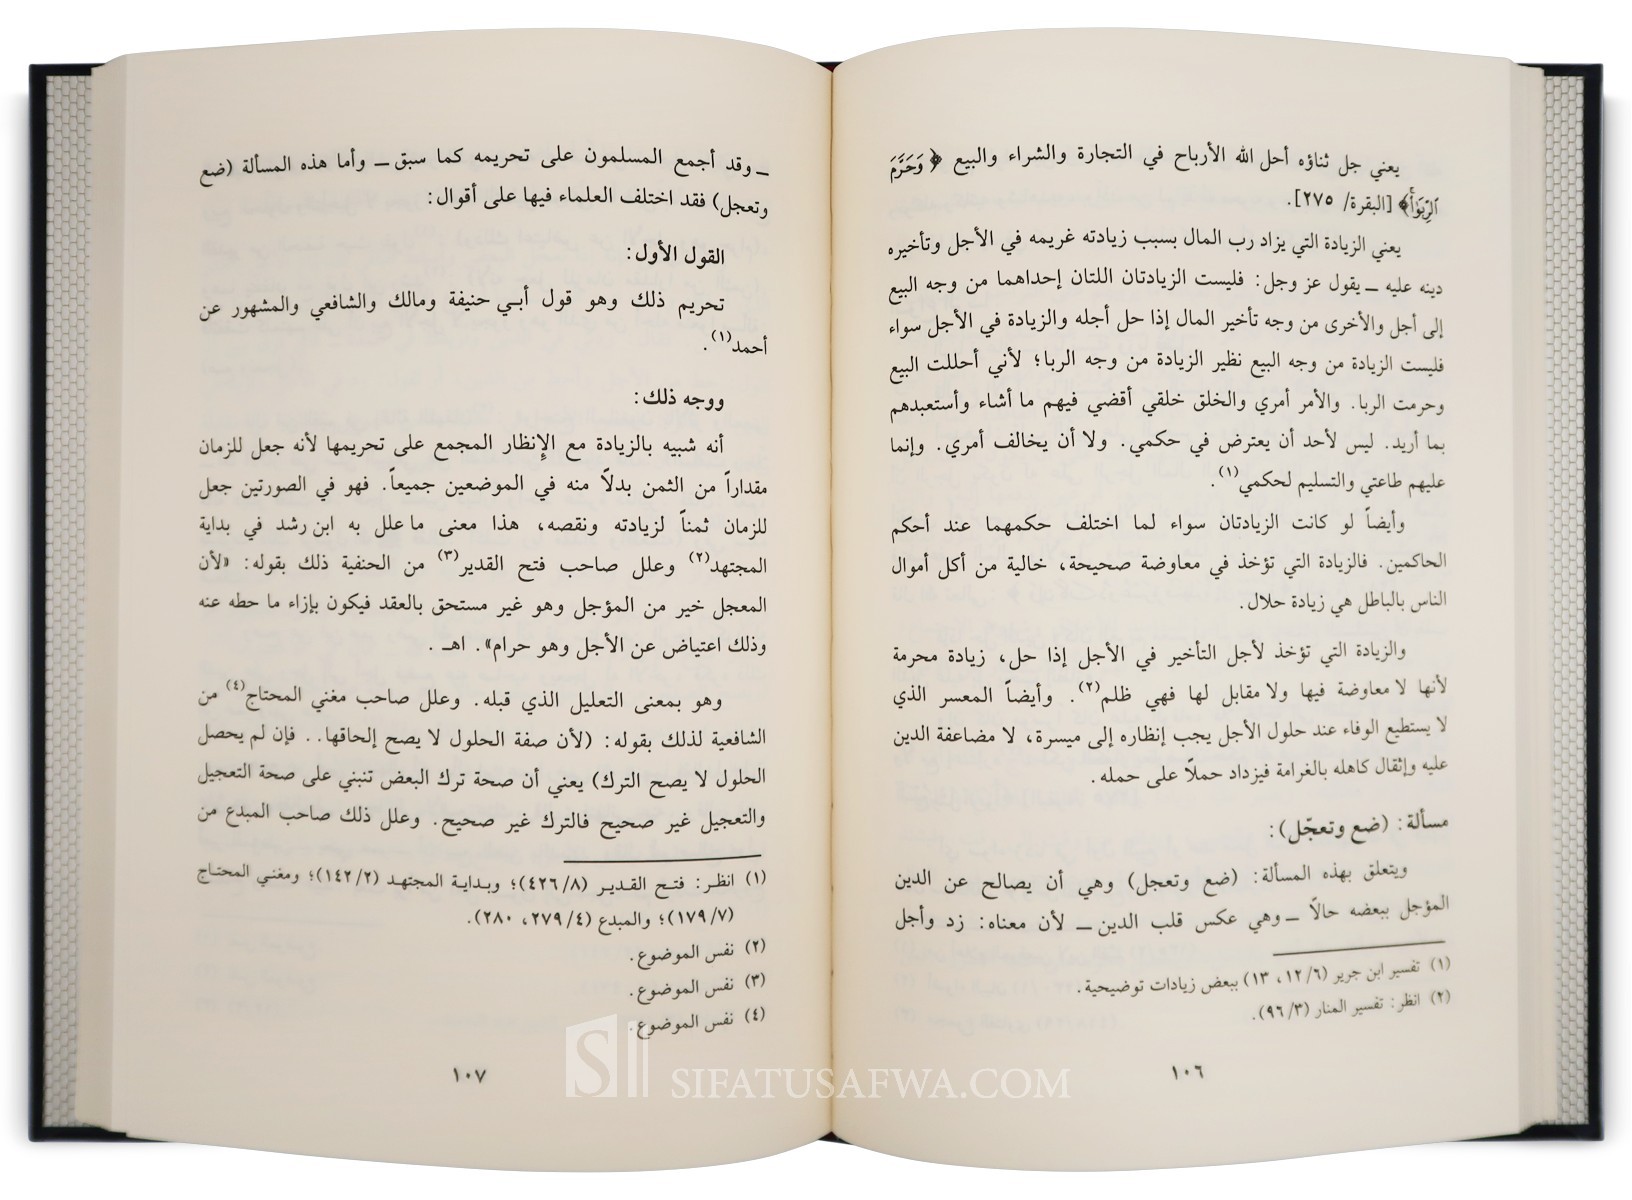 يعني جل ثناؤه أحل الله الأرباح في التجارة والشراء والبيع ﴿وَحَرَّمَ
ٱلرِّبَوٰا۟﴾ [البقرة/ ٢٧٥].
يعني الزيادة التي يزاد رب المال بسبب زيادته غريمه في الأجل وتأخيره
دينه عليه ــ يقول عز وجل: فليست الزيادتان اللتان إحداهما من وجه البيع
إلى أجل والأخرى من وجه تأخير المال إذا حل أجله والزيادة في الأجل سواء
فليست الزيادة من وجه البيع نظير الزيادة من وجه الربا؛ لأني أحللت البيع
وحرمت الربا. والأمر أمري والخلق خلقي أقضي فيهم ما أشاء وأستعبدهم
بما أريد. ليس لأحد أن يعترض في حكمي. ولا أن يخالف أمري. وإنما
عليهم طاعتي والتسليم لحكمي(١).
وأيضاً لو كانت الزيادتان سواء لما اختلف حكمهما عند أحكم
الحاكمين. فالزيادة التي تؤخذ في معاوضة صحيحة، خالية من أكل أموال
الناس بالباطل هي زيادة حلال.
والزيادة التي تؤخذ لأجل التأخير في الأجل إذا حل، زيادة محرمة
لأنها لا معاوضة فيها ولا مقابل لها فهي ظلم(٢). وأيضاً المعسر الذي
لا يستطيع الوفاء عند حلول الأجل يجب إنظاره إلى ميسرة، لا مضاعفة الدين
عليه وإثقال كاهله بالغرامة فيزداد حملاً على حمله.
مسألة: (ضع وتعجّل):
ويتعلق بهذه المسألة: (ضع وتعجل) وهي أن يصالح عن الدين
المؤجل ببعضه حالاً ــ وهي عكس قلب الدين ــ لأن معناه: زد وأجل
(١) تفسير ابن جرير (٦/ ١٢، ١٣) ببعض زيادات توضيحية.
(٢) انظر: تفسير المنار (٣/ ٩٦).
١٠٦
ــ وقد أجمع المسلمون على تحريمه كما سبق ــ وأما هذه المسألة (ضع
وتعجل) فقد اختلف العلماء فيها على أقوال:
القول الأول:
تحريم ذلك وهو قول أبي حنيفة ومالك والشافعي والمشهور عن
أحمد(١).
ووجه ذلك:
أنه شبيه بالزيادة مع الإنظار المجمع على تحريمها لأنه جعل للزمان
مقداراً من الثمن بدلاً منه في الموضعين جميعاً. فهو في الصورتين جعل
للزمان ثمناً لزيادته ونقصه، هذا معنى ما علل به ابن رشد في بداية
المجتهد(٢) وعلل صاحب فتح القدير(٣) من الحنفية ذلك بقوله: «لأن
المعجل خير من المؤجل وهو غير مستحق بالعقد فيكون بإزاء ما حطه عنه
وذلك اعتياض عن الأجل وهو حرام». اهـ .
وهو بمعنى التعليل الذي قبله. وعلل صاحب مغني المحتاج(٤) من
الشافعية لذلك بقوله: (لأن صفة الحلول لا يصح إلحاقها.. فإن لم يحصل
الحلول لا يصح الترك) يعني أن صحة ترك البعض تنبني على صحة التعجيل
والتعجيل غير صحيح فالترك غير صحيح. وعلل ذلك صاحب المبدع من
(١) انظر: فتح القدير (٨/ ٤٢٦)؛ وبداية المجتهد (٢/ ١٤٢)؛ ومغني المحتاج
(٧/ ١٧٩)؛ والمبدع (٤/ ٢٧٩، ٢٨٠).
(٢) نفس الموضوع.
(٣) نفس الموضوع.
(٤) نفس الموضوع.
١٠٧
SIFATUSAFWA.COM